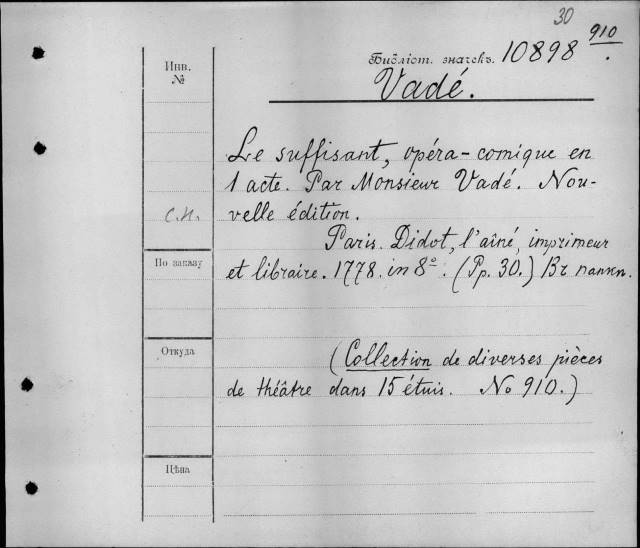 30
Инв.
№
Библіот. значекъ. 10898 910
Vadé.
Le suffisant, opéra-comique en
1 acte. Par Monsieur Vadé. Nou-
velle édition.
С.Н.
Paris. Didot, l'aîné, imprimeur
По заказу
et libraire. 1778. in 8º. (Pp. 30.) Вг
Откуда
(Collection de diverses pièces
de théâtre dans 15 étuis. No 910.)
Цѣна